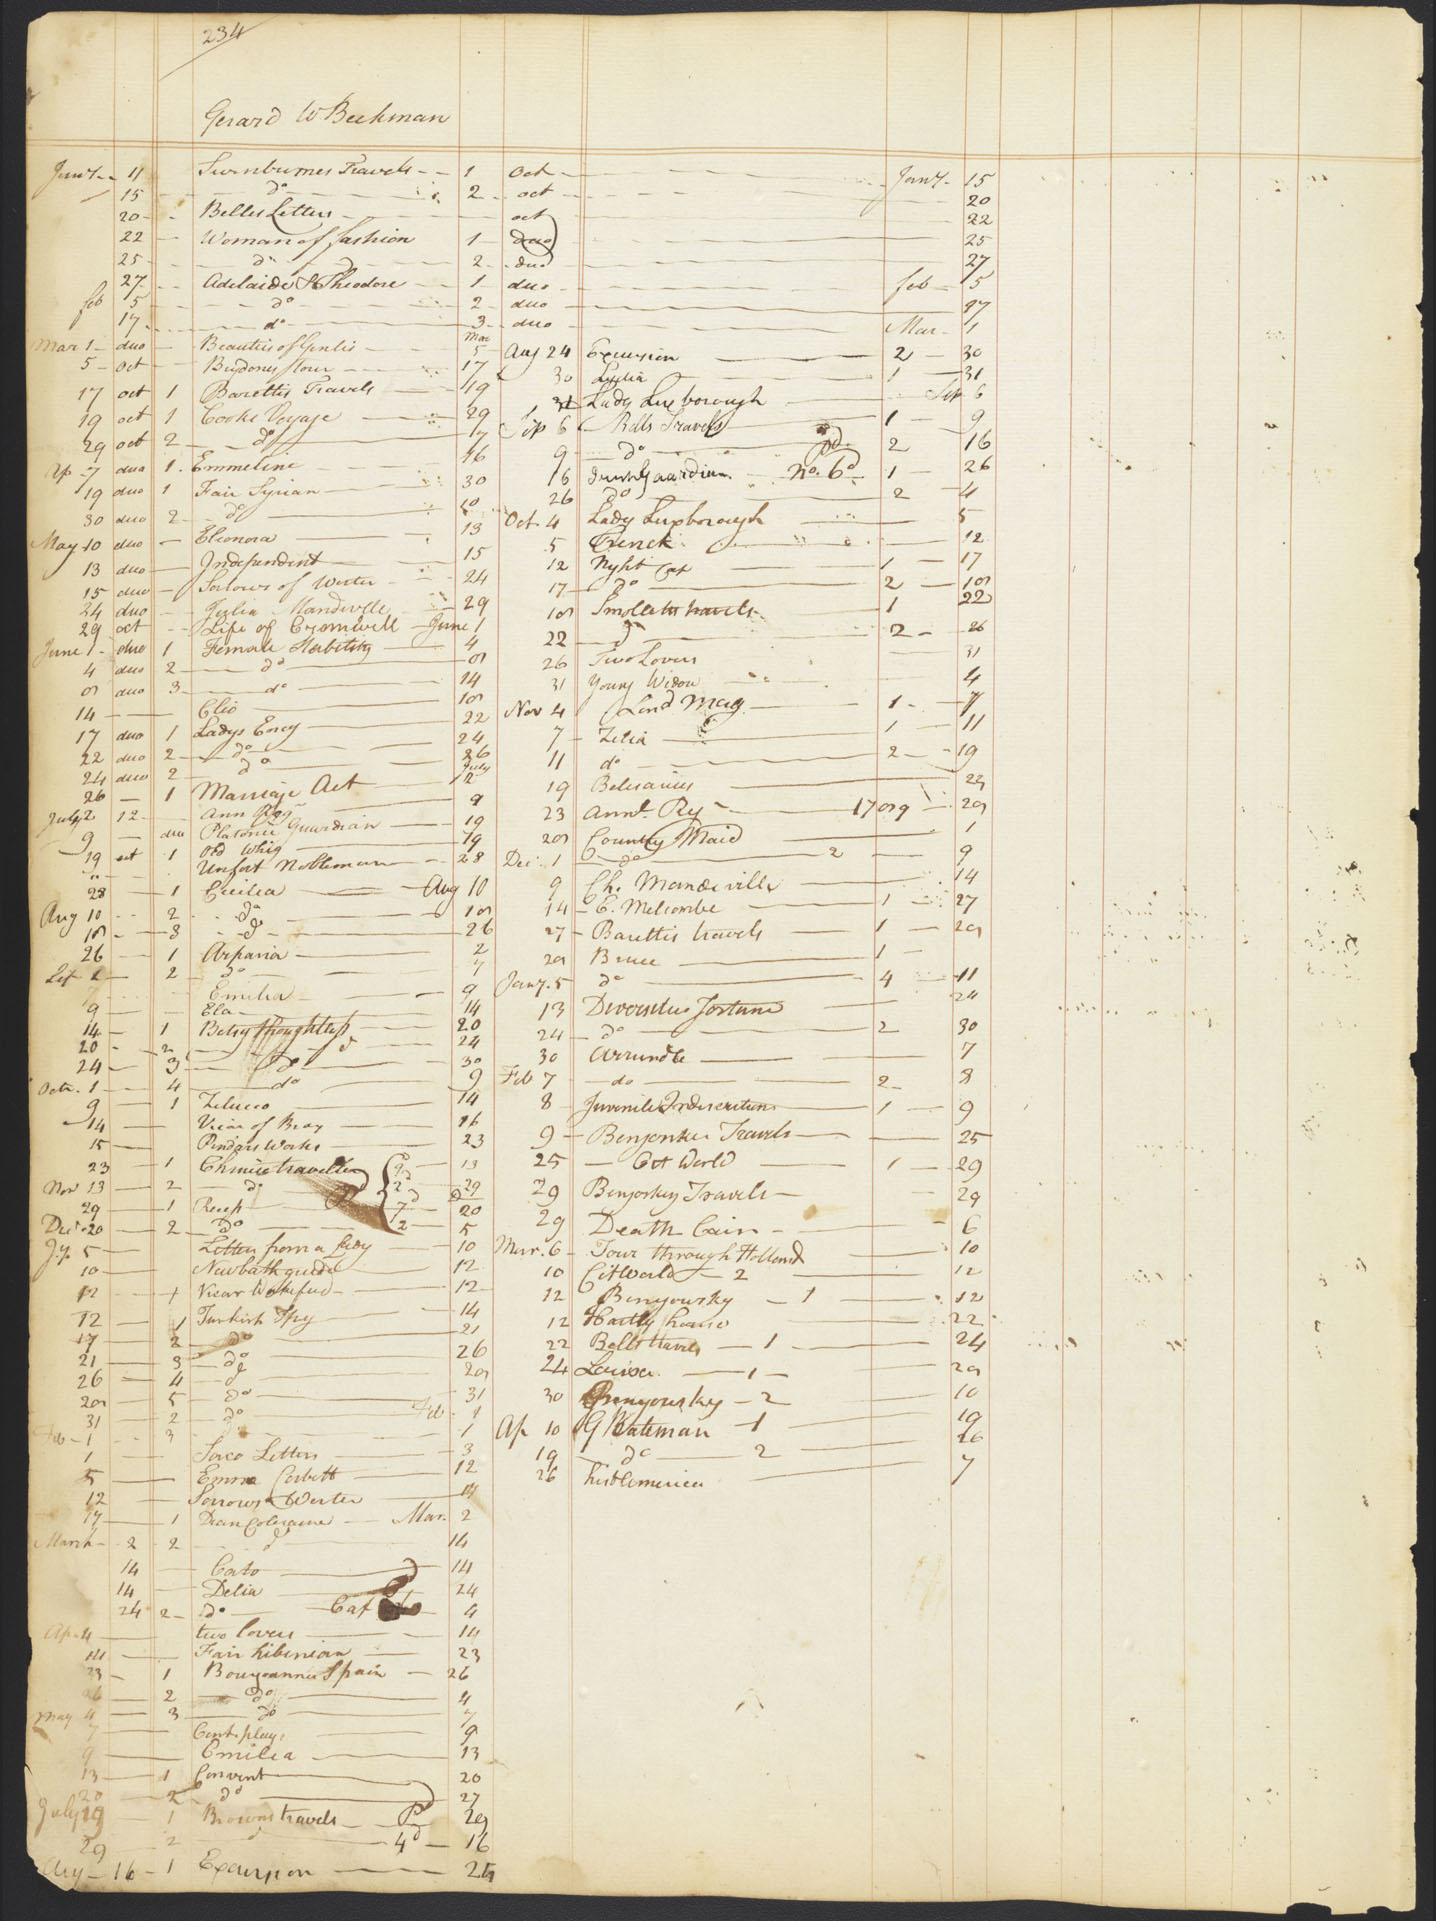 234
Gerard W Beekman
Jany 11 Swinburnes Travels 1 oct Jany 15
15 do 2 oct 20
20 Belles Letters oct 22
22 Woman of fashion 1 duo 25
25 do 2 duo 27
27 Adelaide & Theodore 1 duo feb 5
feb 5 do 2 duo 17
17 do 3 duo Mar 1
Mar 1 duo Beauties of Genlis Mar 5
5 oct Brydones tour 17
17 oct 1 Barettis Travels 19
19 oct 1 Cooks Voyage 29
29 oct 2 do 17
Ap 7 duo 1 Emmeline 16
19 duo 1 Fair Syrian 30
30 duo 2 do 10
May 10 duo Eleonora 13
13 duo Independent 15
15 duo Sorrows of Werter 24
24 duo Julia Mandeville 29
29 oct Life of Cromwell June 1
June 1 duo 1 Female Stability 4
4 duo 2 do 8
8 duo 3 do 14
14 Clio 18
17 duo 1 Ladys 22
22 duo 2 do 24
24 duo 2 do 26
26 1 Marriage Act July 2
July 2 12 Ann Reg 9
9 duo Platonic Guardian 19
19 oct 1 Old Whig 19
Unfort Nobleman 28
28 1 Cecilia Aug 10
Aug 10 2 do 18
18 3 do 26
26 1 Arpasia 2
2 do 7
7 Emilia 9
9 Ela 14
14 1 Betsy thoughtless 20
20 2 do 24
24 3 do 30
Octr. 1 4 do 9
9 1 Zeluco 14
14 Vicar of Bray 16
15 Pindars Works 23
23 1 Chinese traveller 13
Nov 13 2 do 29
29 1 Recess 20
Decr 20 2 do 5
Jy 5 Letters from a Lady 10
10 New bath guide 12
12 1 Vicar Wakefield 12
12 1 Turkish Spy 14
17 2 do 21
21 3 do 26
26 4 do 28
28 5 do 31
31 2 do Feb 1
Feb 1 3 1
1 Letters 3
5 Emma Corbett 12
12 Sorrows Werter 14
17 1 Dean Coleraine Mar. 2
March 2 2 do 14
14 Cato 14
14 Delia 24
24 2 do Cat 4
Ap 4 two lovers 14
14 Fair hibernian 23
23 1 Bourgoannes Spain 26
26 2 do 4
May 4 3 do 7
7 Cent. plays 9
9 Emilia 13
13 1 Convent 20
20 2 do 27
July 19 1 Browns travels Pd 29
29 2 do 4d 16
Aug 16 1 Excursion 24
Aug 24 Excursion 2 30
30 Lydia 1 31
31 Lady Luxborough Sep 6
Sep 6 Bells Travels 1 9
9 do 2 16
16 Guardian No. 6d 1 26
26 do 2 4
Oct. 4 Lady Luxborough 5
5 Trenck 12
12 Night Cap 1 17
17 do 2 18
18 Smolletts travels 1 22
22 do 2 26
26 Two Lovers 31
31 Young Widow 4
Nov 4 Lond Mag 1 7
7 Zelia 1 11
11 do 2 19
19 Belisarius 23
23 Annl. Reg 1789 28
28 Country Maid 1
Dec. 1 do 2 9
9 Ch. Mandeville 14
14 E. Melcombe 1 27
27 Barettis travels 1 29
29 Bruce 1
Jany. 5 do 4 11
13 Fortune 24
24 do 2 30
30 Arundle 7
Feb 7 do 2 8
8 Juvenile Indiscretions 1 9
9 Travels 25
25 Cit World 1 29
29 Travels 29
29 Death Cain 6
Mar. 6 Tour through Holland 10
10 Cit World 2 12
12 Benyousky 1 12
12 Hartly house 22
22 Bells travels 1 24
24 Louisa 1 28
30 Benyousky 2 10
Ap 10 G Bateman 1 19
19 do 2 26
26 hist America 7